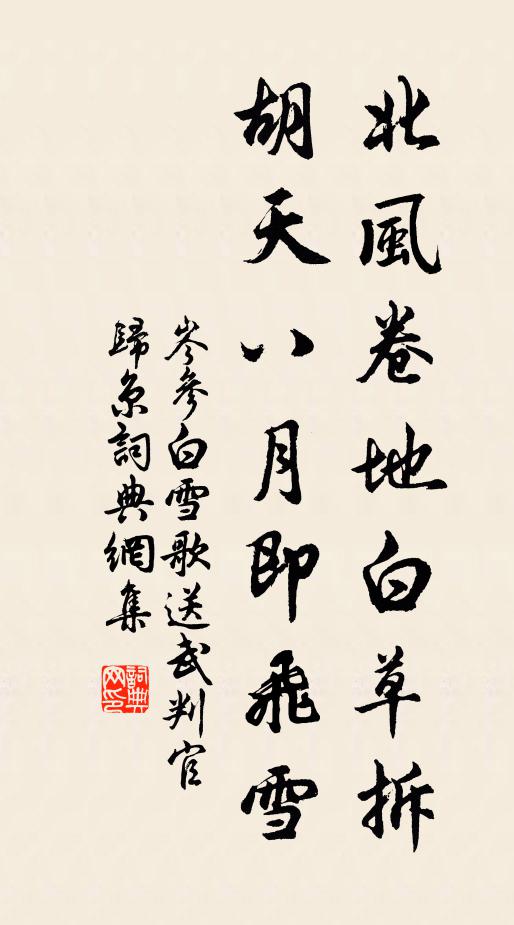 北風卷地白草拆
胡天八月即飛雪
岑參白雪歌送武判官
歸京詞典網集
詞典
网印